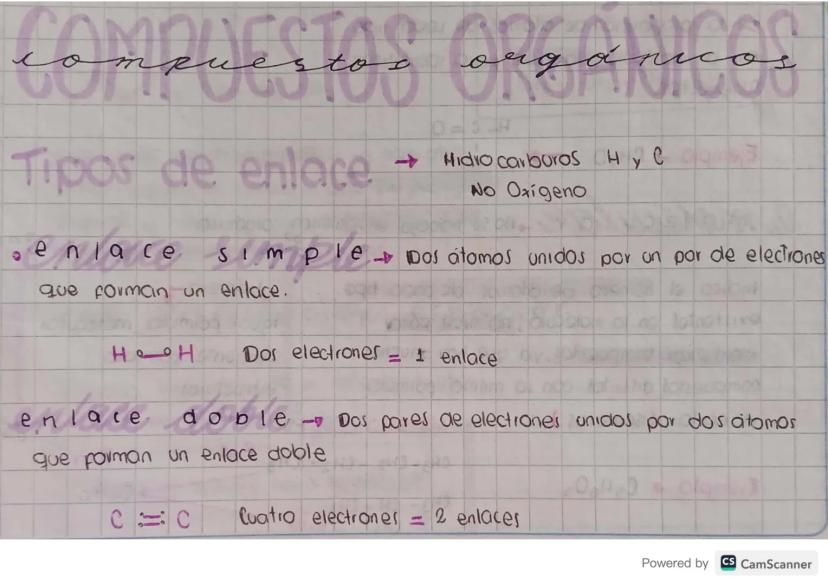 COMPUESTOS ORGÁNICOS
compuestos orgánicos
Tipos de enlace → Hidrocarburos H y C
No Oxígeno
• enlace simple → Dos átomos unidos por un par de electrones
que forman un enlace.
H H Dos electrones = 1 enlace
enlace doble → Dos pares de electrones unidos por dos átomos
que forman un enlace doble
C = C Cuatro electrones = 2 enlaces
Powered by CS CamScanner